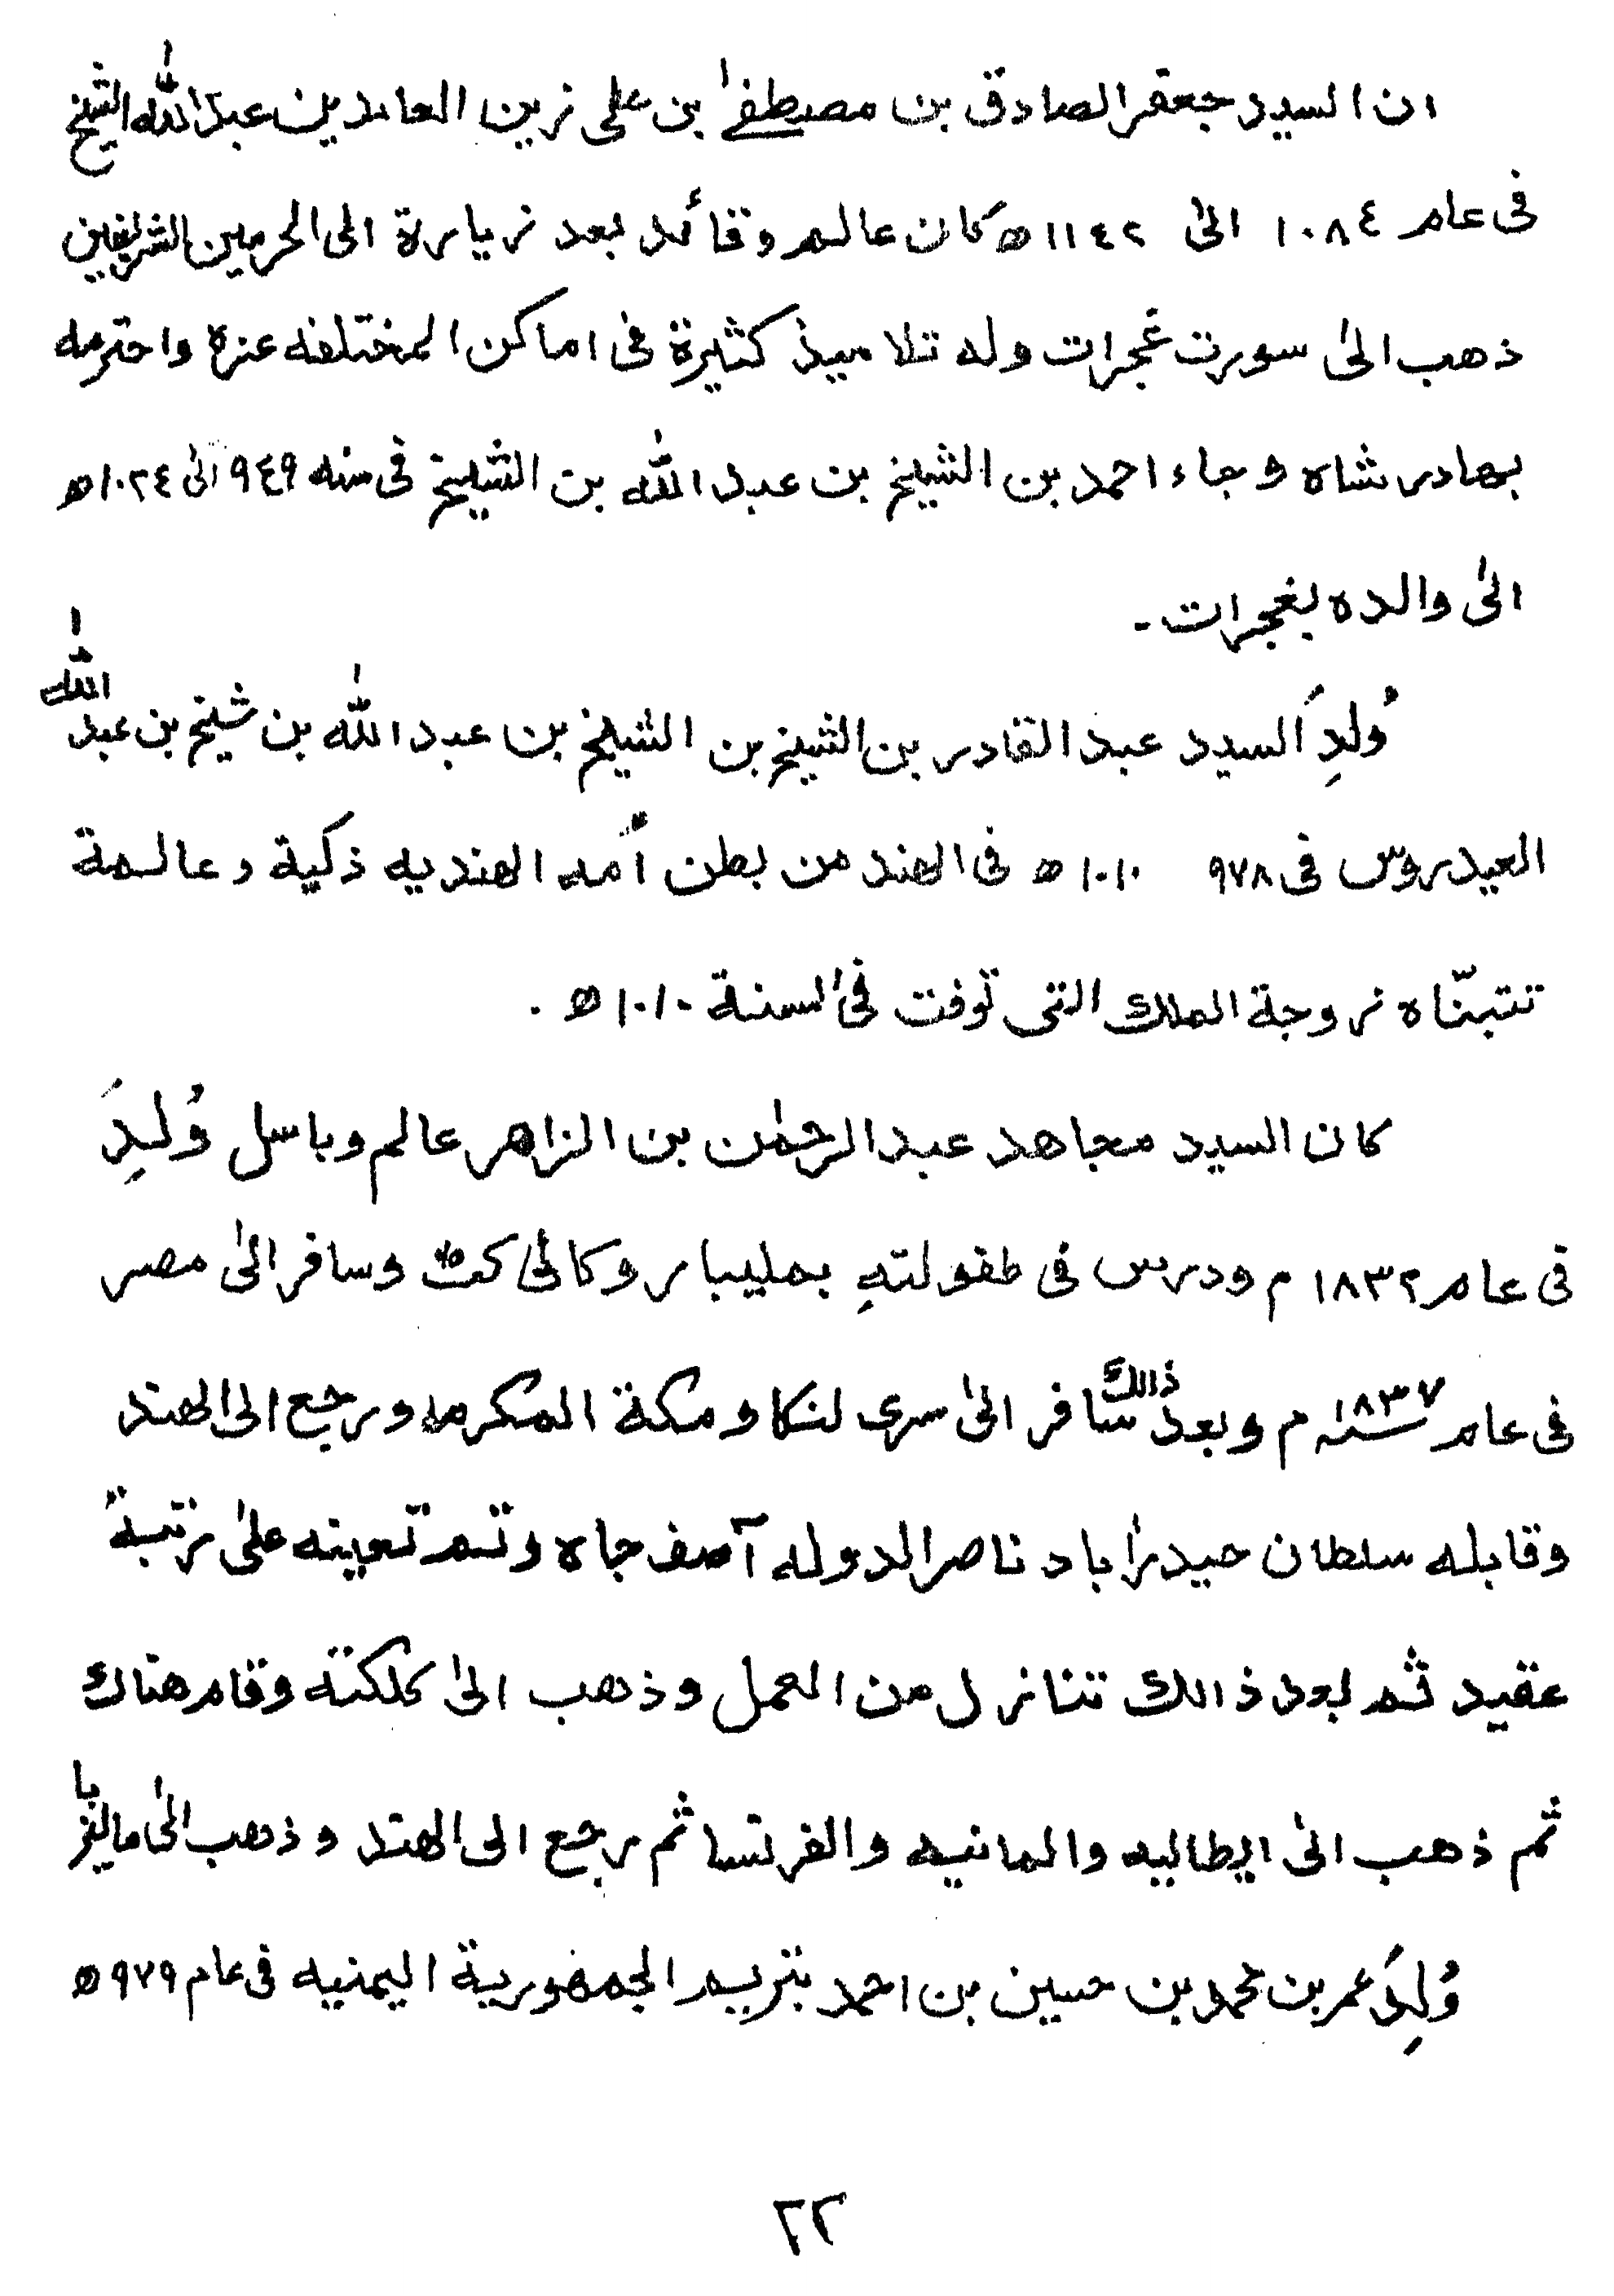 ان السيد جعفر الصادق بن مصطفىٰ بن على زين العابدين عبد الله الشيخ
فى عام ١٠٨٤ الىٰ ١١٤٢ ھ كان عالم وقائد بعد زيارة الى الحرمين الشريفين
ذهب الىٰ سورت غجرات وله تلاميذ كثيرة فى اماكن المختلفه عزه واحترمه
بهادر شاه وجاء احمد بن الشيخ بن عبد الله بن الشيخ فى سنه ٩٤٩ الىٰ ١٠٢٤ ھ
الىٰ والده بغجرات ۔
وُلِدَ السيد عبد القادر بن الشيخ بن الشيخ بن عبد الله بن شيخ بن عبد الله
العيدروس فى ٩٧٨ ١٠١٠ ھ فى الهند من بطن أمه الهنديه ذكية وعالمة
تتبنّاه زوجة الملك التى توفت فى السنة ١٠١٠ ھ .
كان السيد مجاهد عبد الرحمٰن بن الزاهر عالم وباسل وُلِدَ
فى عام ١٨٣٢ م ودرس فى طفولتهِ بمليبار وكالى كٹ وسافر الىٰ مصر
فى عام ١٨٣٧ م وبعد ذالك سافر الىٰ سرى لنكا ومكة المكرمه ورجع الى الهند
وقابله سلطان حيدرٰاباد ناصر الدوله آصف جاه وتم تعيينه علىٰ رتبة
عقيد ثم بعد ذالك تنازل من العمل وذهب الىٰ كلكته وقام هناك
ثم ذهب الىٰ ايطاليه والمانيه والفرنسا ثم رجع الى الهند وذهب الىٰ
وُلِدَ عمر بن محمد بن حسين بن احمد بتريم الجمهورية اليمنيه فى عام ٩٧٩ ھ
٢٢